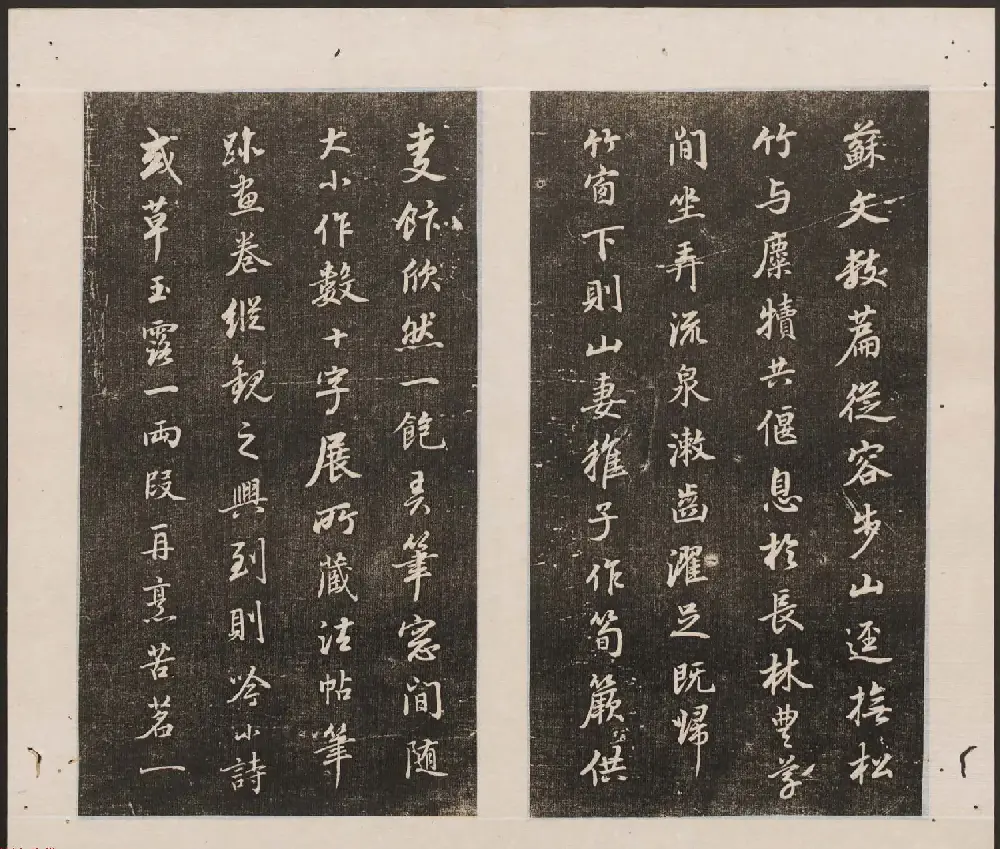 蘇文數篇從容步山逕撫松
竹与麋犢共偃息於長林豐草
間坐弄流泉漱齒濯足既歸
竹窗下則山妻稚子作筍蕨供
麦飰欣然一飽弄筆窓間随
大小作數十字展所藏法帖筆
跡画卷縱観之興到則吟小詩
或草玉露一兩段再烹苦茗一